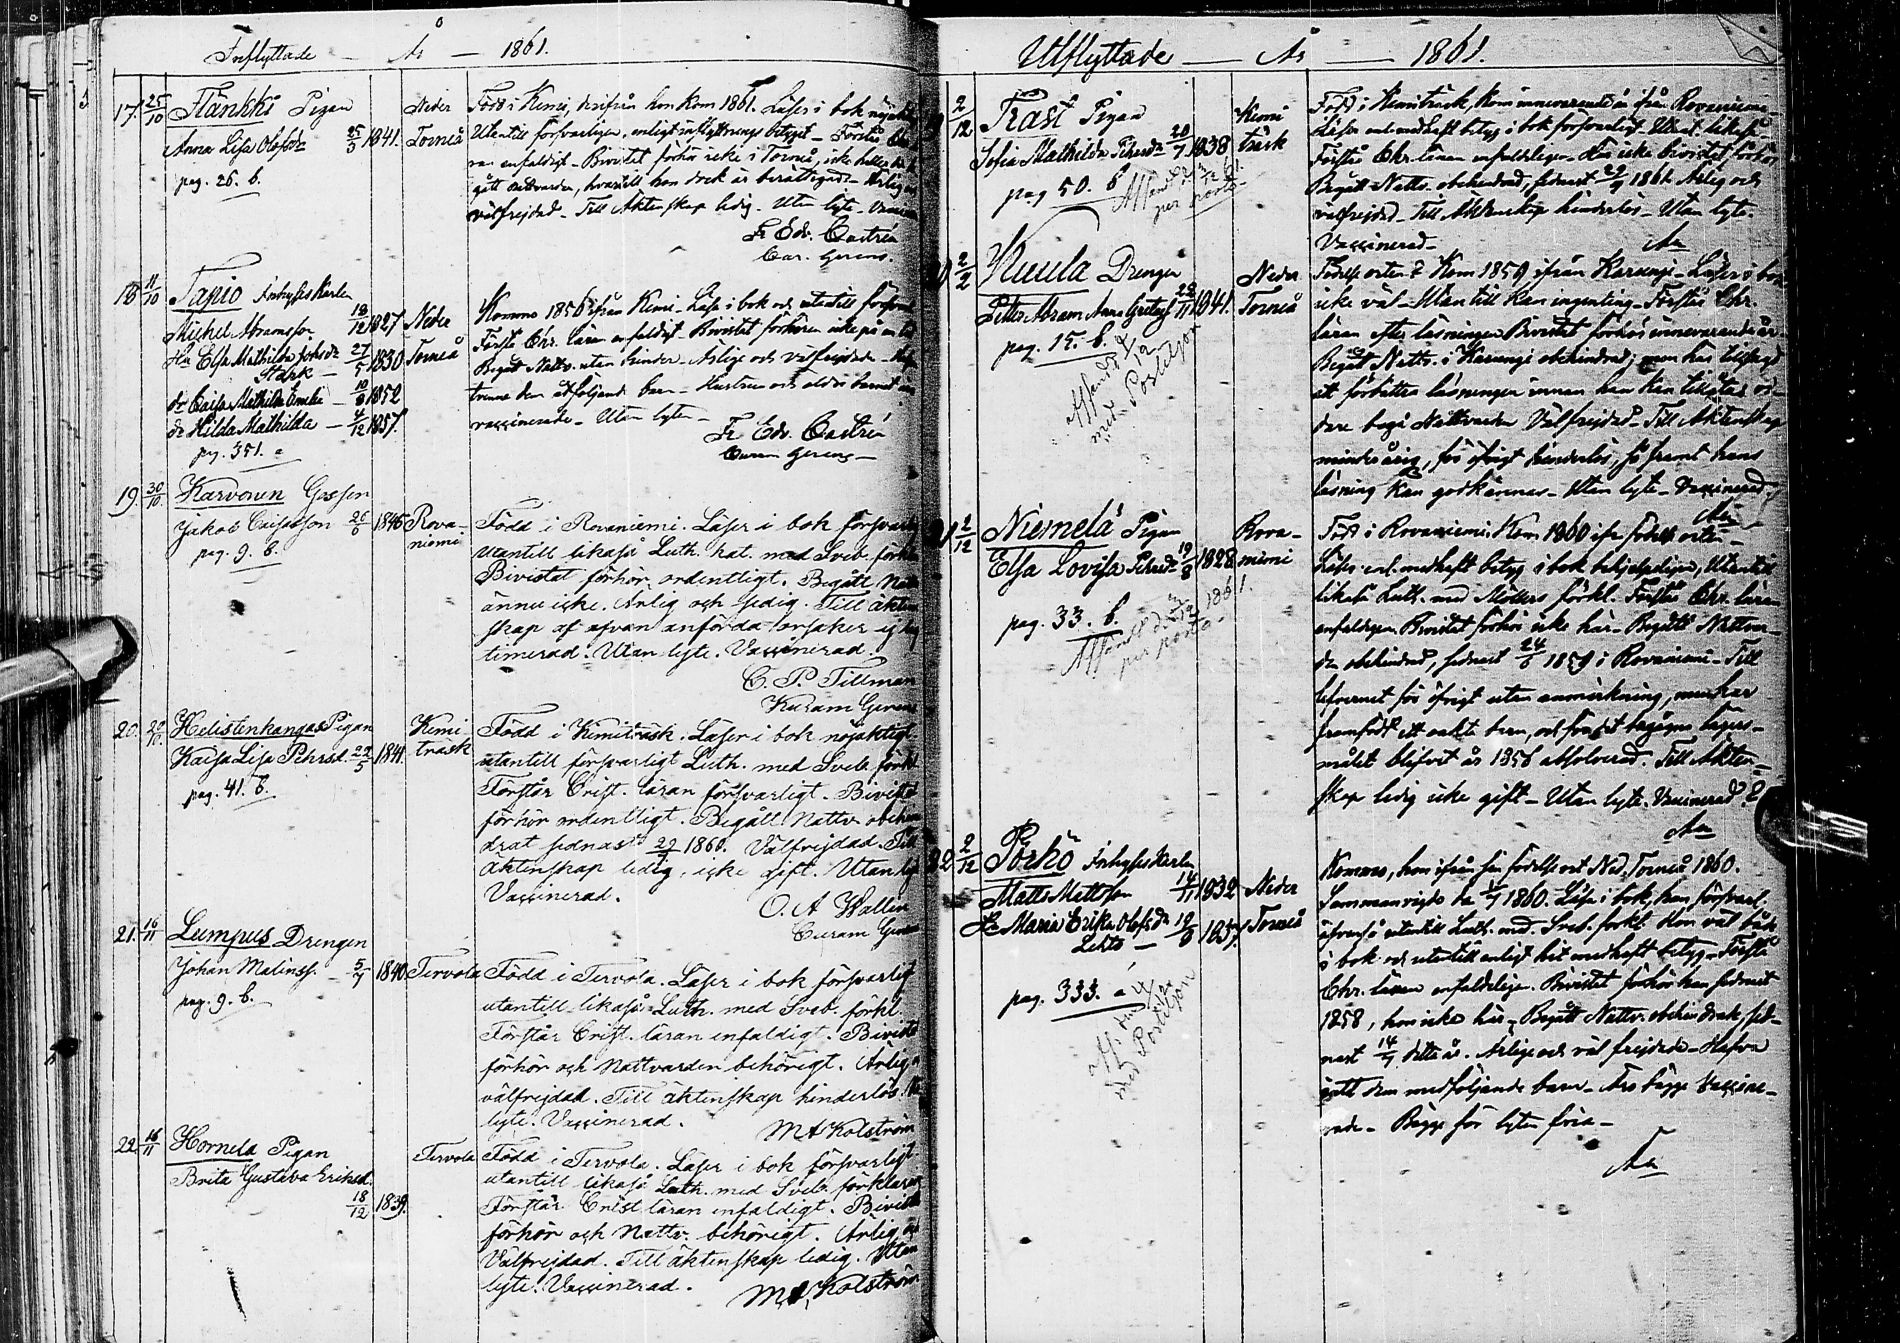 Inflyttade — År — 1861.
17. 25/10 Flänkki Pigan
Anna Lisa Olofsdr 25/3 1841.
pag. 26. b.
Neder
Torneå
Född i Kemi, derifrån hon kom 1861. Läser i bok nöjaktigt
Utantill försvarligen, enligt inflyttnings betyget — Förstår Chr.
ran enfaldigt — Bivistat förhör icke i Torneå, icke heller be
gått Nattvarden, hvartill hon dock är berättigad — Ärlig och
välfrejdad — Till Äktenskap ledig — Utan lyte — Vaccin
Fr Edv. Castrén
Cur. Gerens.
18 11/10 Tapio Inhyses Karlen
Michel Abramsson 19/12 1827
Hu Elsa Mathilda Johsdr 27/5 1830
Stark —
dr Caisa Mathilda Emelie — 10/9 1852
dr Hilda Mathilda — 4/12 1857.
pag. 351. a
Neder
Torneå
Komne 1856 ifrån Kemi — Läsa i bok och utantill försvarl
Förstå Chr. läran enfaldigt — Bivistat förhören icke på en tid
Begått Nattv. utan hinder — Ärlige och välfrejdade —
trenne dem åtföljande barn — Hustrun och äldre barnet
vaccinerade — Utan lyte —
Fr Edv. Castrén
Curam Gerens —
19. 30/10 Karvonen Gossen
Jakob Ericsson 26/6 1846
pag. 9. b.
Rova-
niemi
Född i Rovaniemi. Läser i bok försvarlig
utantill likaså Luth. kat. med Sveb. förkla
Bivistat förhör ordentligt. Begått Natt
ännu icke. Ärlig och sedig. Till äkten
skap af ofvan anförda orsaker ej leg
timerad. Utan lyte. Vaccinerad.
C. P. Tillman
Kuram Gerens
20. 29/10 Helistenkangas Pigan
Kaisa Lisa Pehrsd. 22/5 1841.
pag. 41. b.
Kemi-
träsk
Född i Kemiträsk. Läser i bok nöjaktigt
utantill försvarligt Luth. med Sveb. förkl
Förstår Crist. läran försvarligt. Bivistat
förhör ordentligt. Begått Nattv. obehin
drat sednast 29/ 1860. Välfrejdad. Till
Äktenskap ledig, icke gift. Utan lyt
Vaccinerad.
O. A Wallin
Curam Gerens
21. 16/11 Lumpus Drengen
Johan Malinss. — 5/7 1840
pag. 9. b.
Tervola
Född i Tervola. Läser i bok försvarligt
utantill likaså Luth. med Sveb. förkl.
Förstår Crist. läran enfaldigt. Bivista
förhör och nattvarden behörigt. Ärlig o
välfrejdad. Till äktenskap hinderlös.
lyte. Vaccinerad.
M A Kolström
22. 16/11 Hornela Pigan
Brita Gustava Eriksd.
18/12 1839.
Tervola
Född i Tervola. Läser i bok försvarligt
utantill likaså Luth. med Sveb. förklaran
Förstår Crist läran enfaldigt. Bivista
förhör och Nattv. behörigt. Ärlig och
Välfrejdad. Till äktenskap ledig. Utan
lyte. Vaccinerad.
M A Kolström
Utflyttade — År — 1861.
19 2/12 Trast Pigan
Sofia Mathilda Pehrsdr 20/7 1838
pag 50. b
Affänd d. 3/12 61.
per posto—
Kemi
träsk
Född i Kemiträsk, kom innevarande år ifrån Rovaniemi
Läser enl. medhaft betyg i bok försvarligt Utant. likaså
Förstår Chr. läran enfaldeligen — Har icke bivistat förhör
Begått Nattv. obehindrad, sednast 29/9 1861. Ärlig och
välfrejdad — Till Äktenskap hinderlös — Utan lyte.
Vaccinerad —
20 2/12 Kuula Drengen
Petter Abram Anna Gretasf 28/11 1841.
pag. 15. b.
affändt 4/12
med Postiljon
Neder
Torneå
Födelse orten? Kom 1859 ifrån Karungi — Läser i bok
icke väl — Utan till kan ingenting — Förstår Chr.
läran efter läsningen Bivistat förhör innevarande år
Begått Nattv. i Karungi obehindrad, men har tillsagd
att förbättra läsningen innan han kan tillåtas vi-
dare begå Nattvarden Välfrejdad — Till Äktenskap
minderårig, för öfrigt hinderlös, så framt hans
läsning kan godkännas — Utan lyte — Vaccinerad
21 2/12 Niemelä Pigan
Elsa Lovisa Pehrsdr 19/8 1828
pag. 33. b.
Affändt d. 3/12 1861.
per posto—
Rova-
niemi
Född i Rovaniemi. Kom 1860 ifr. födelse orten —
Läser enl. medhaft betyg i bok behjelpeligen, Utantill
likaså Luth. med Möllers förkl. Förstår Chr. läran
enfaldigen Bivistat förhör icke här — Begått Nattvar-
den obehindrad, sednast 24/6 1859 i Rovaniemi — Till
lefvernet för öfrigt utan anmärkning, men har
framfödt ett oäkta barn, och för det begångna lägers-
målet blifvit år 1858 absolverad. Till Äkten-
skap ledig icke gift — Utan lyte. Vaccinerad
22 2/12 Pörkö Inhyses Karlen
Matts Mattsson 14/11 1832
Hu Maria Erika Olofsdr 19/8 1837.
Lehto —
pag. 333. a
aff. med 4/12
med Postiljon
Neder
Torneå
Kommo, hon ifrån sin födelseort Ned. Torneå 1860.
Sammanvigde de 1860. Läser i bok, han försvarl.
äfvenså utantill Luth. med. Sveb. förkl. Hon väl både
i bok och utantill enligt hit medhaft betyg — Förstå
Chr. läran enfaldeligen. Bivistat förhör han sednast
1858, hon icke här — Begått Nattv. obehindrade, sed-
nast 14/7 detta år. Ärlige och väl frejdade — Hafva
ett dem medföljande barn — Äro bägge Vaccine-
rade — Bägge för lyten fria —